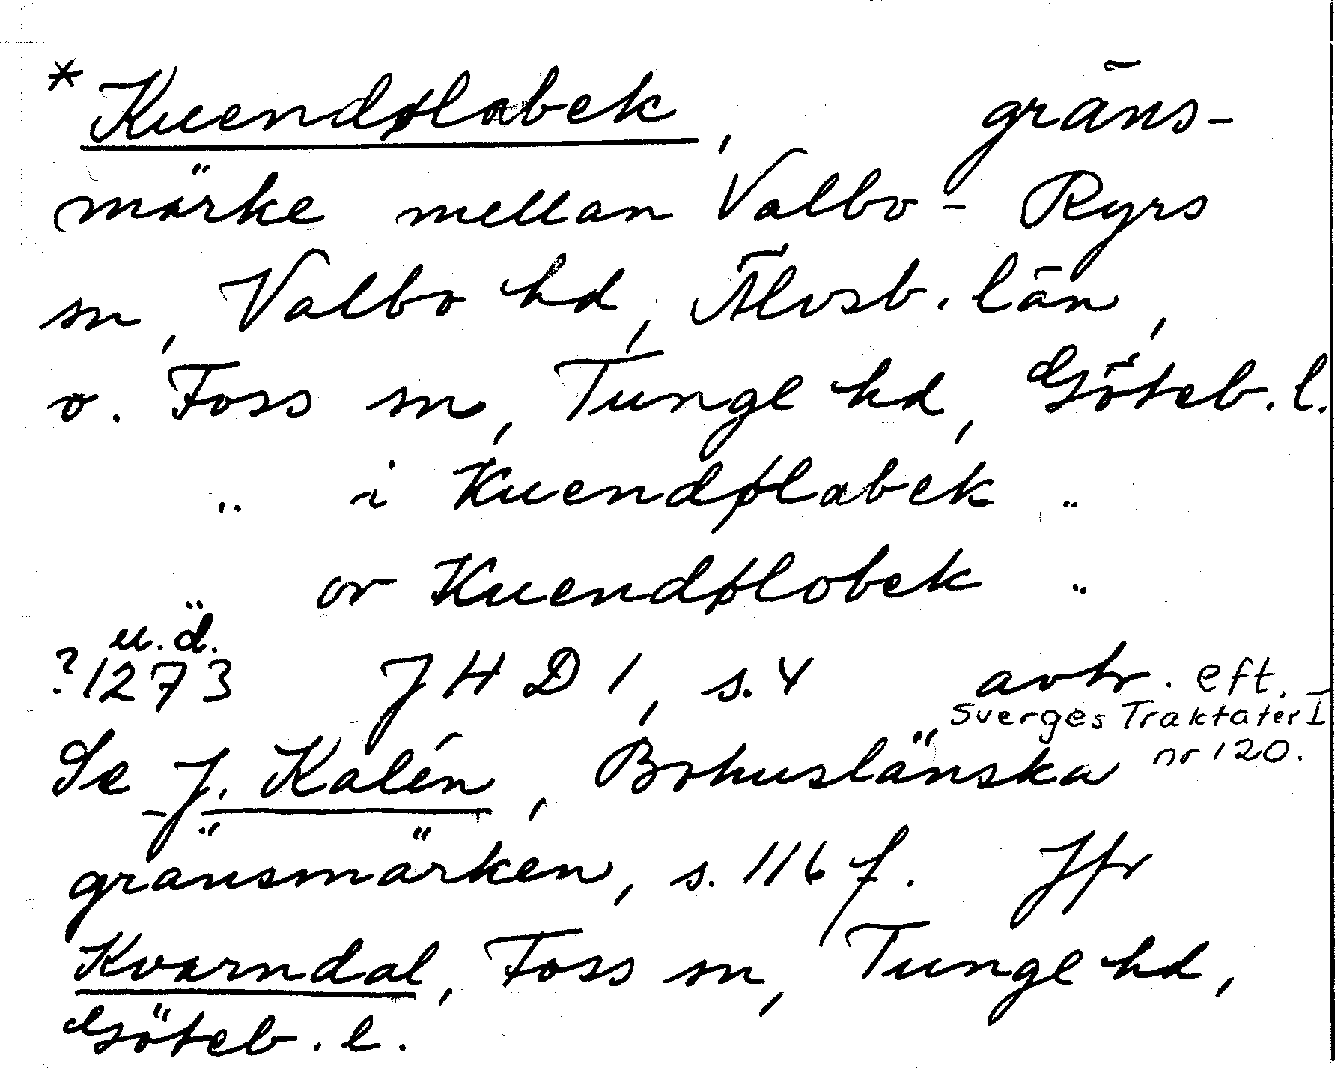 *Kuendølabek, gräns-
märke mellan Valbo-Ryrs
sn, Valbo hd, Älvsb. län,
o. Foss sn, Tunge hd, Göteb. l.
" i Kuendølabek "
" or Kuendølobek "
u.d.
?1273 JHD 1, s. 4 avtr. eft.
Sverges Traktater I
nr 120.
Se J. Kalén, Bohuslänska
gränsmärken, s. 116 f. Jfr
Kvarndal, Foss sn, Tunge hd,
Göteb. l.